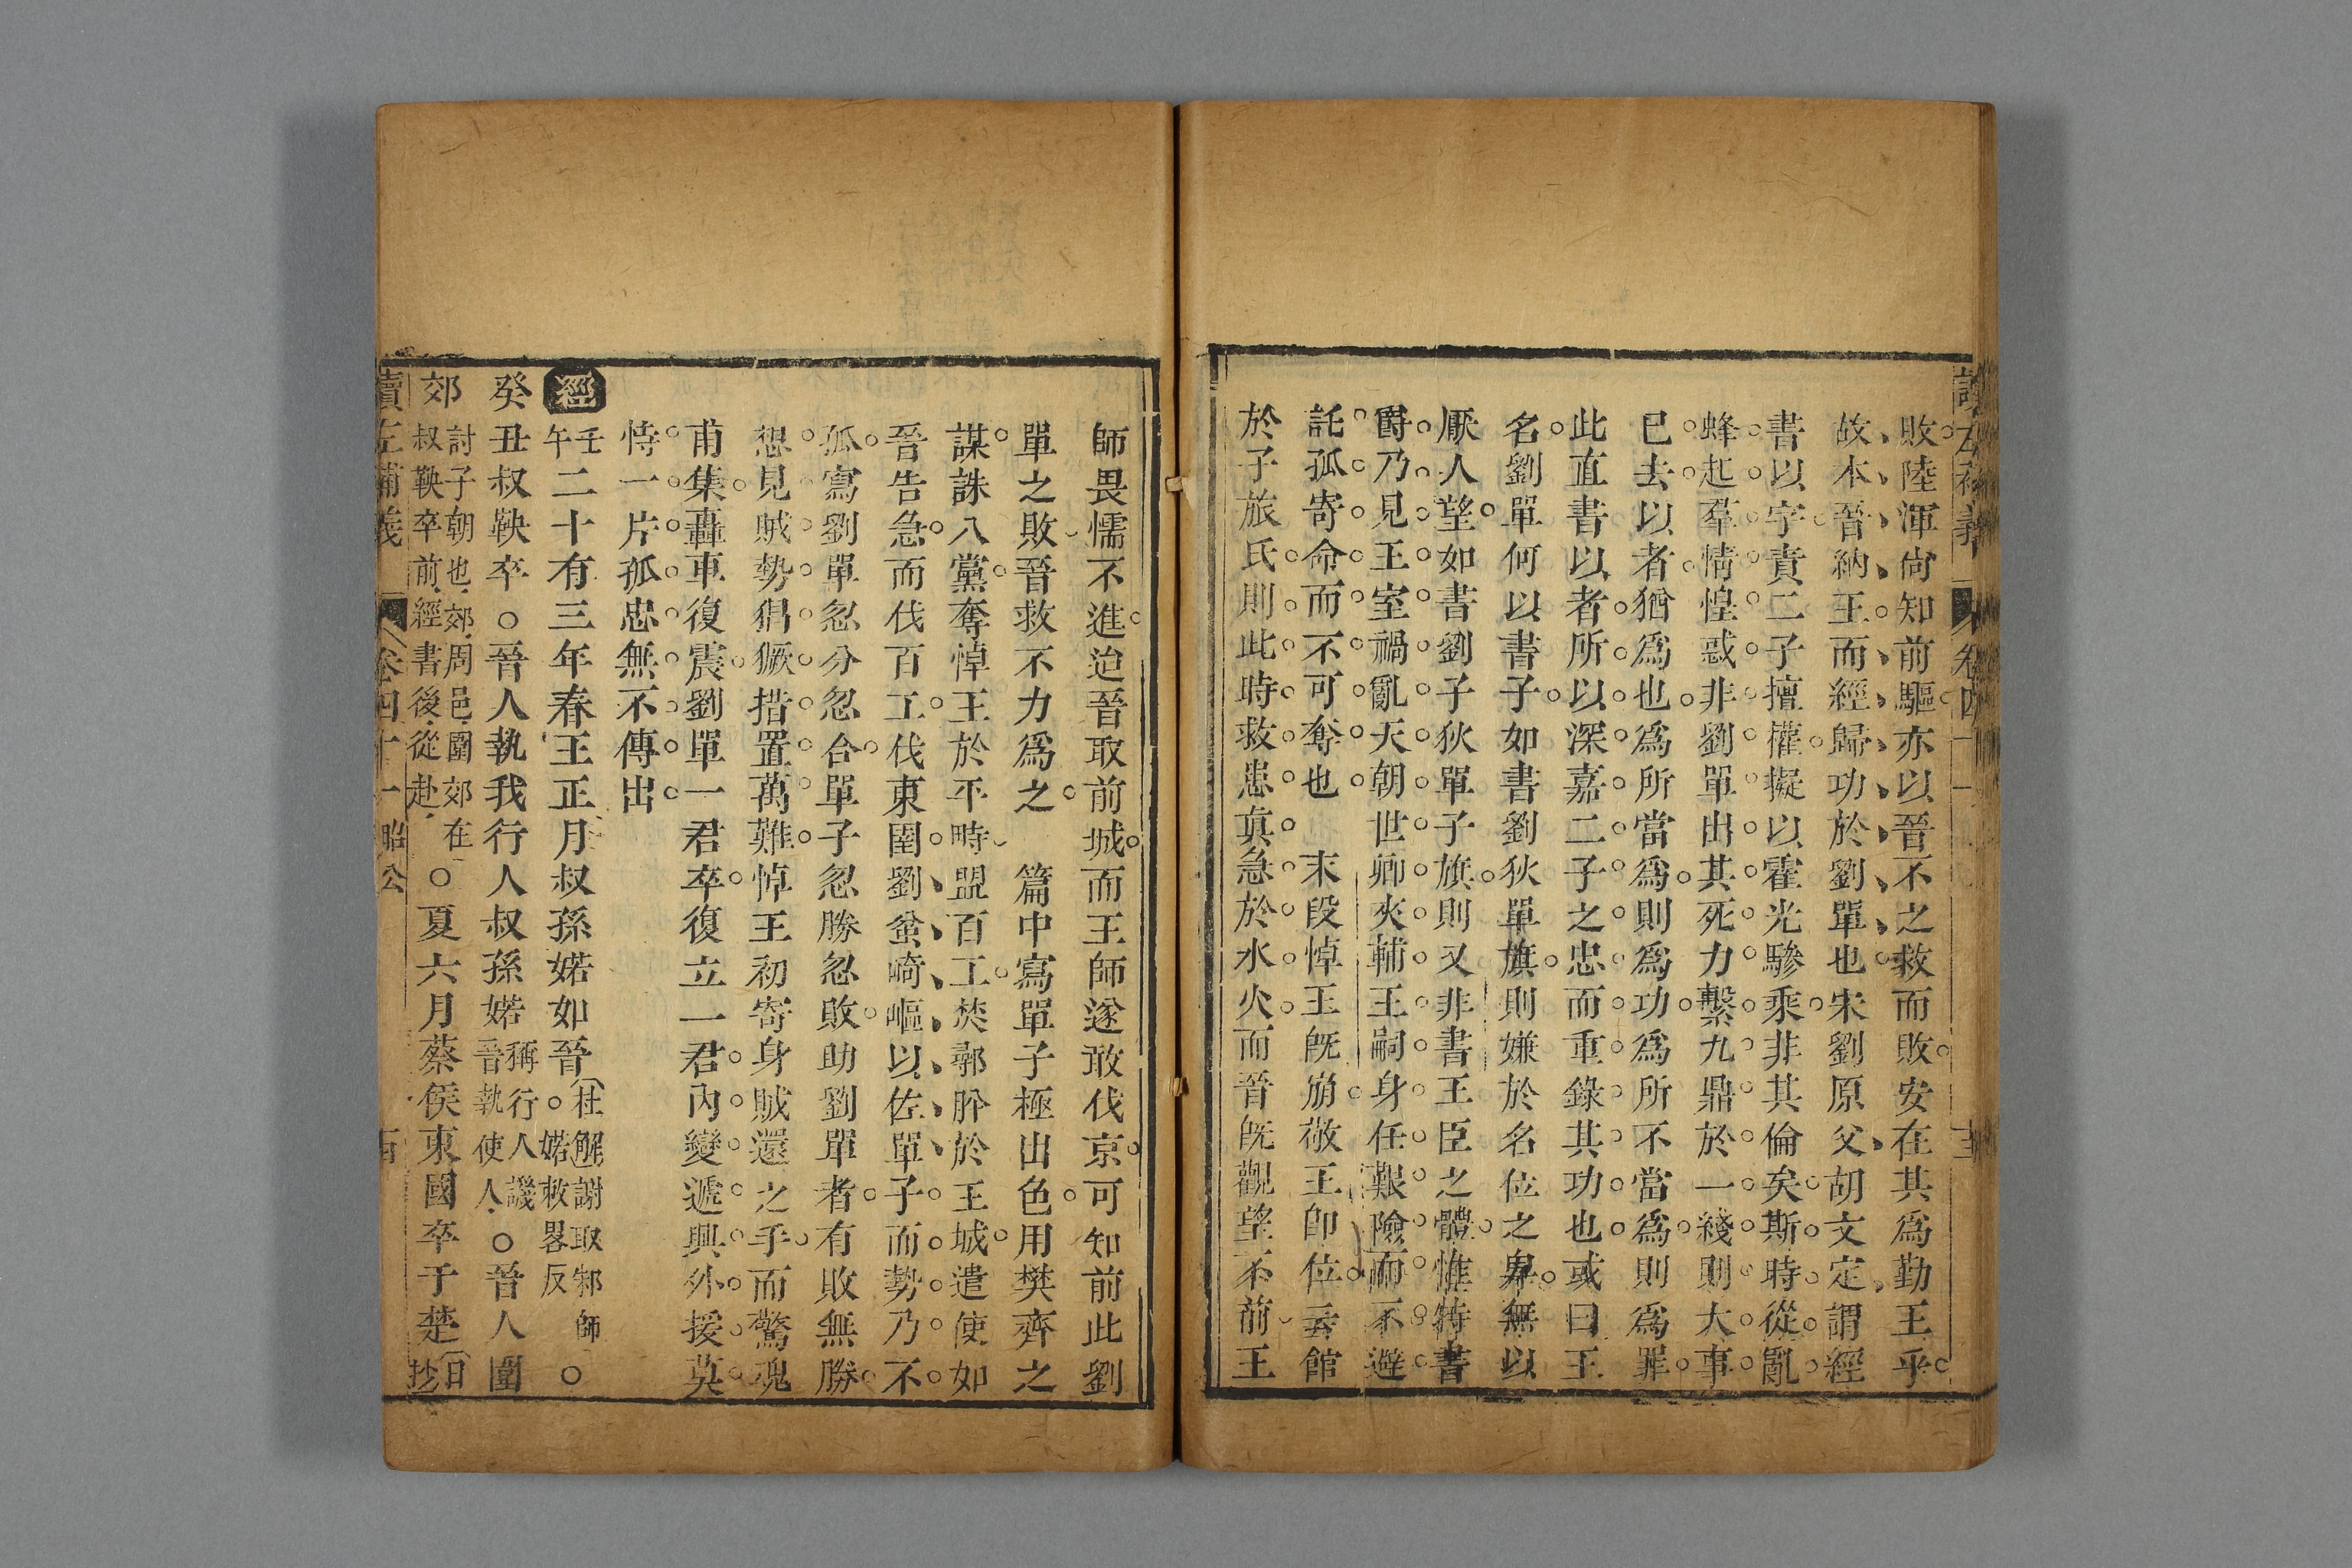 敗陸渾尙知前驅亦以晉不之救而敗安在其爲勤王乎
故本晉納王而經歸功於劉單也宋劉原父胡文定謂經
書以字責二子擅權擬以霍光驂乘非其倫矣斯時從亂
蜂起羣情惶惑非劉單出其死力繫九鼎於一綫則大事
已去以者猶爲也爲所當爲則爲功爲所不當爲則爲罪
此直書以者所以深嘉二子之忠而重錄其功也或曰王
名劉單何以書子如書劉狄單旗則嫌於名位之卑無以
厭人望如書劉子狄單子旗則又非書王臣之體惟特書
爵乃見王室禍亂天朝世卿夾輔王嗣身任艱險而不避
託孤寄命而不可奪也　末段悼王旣崩敬王卽位云館
於子旅氏則此時救患眞急於水火而晉旣觀望不前王
師畏懦不進迨晉取前城而王師遂敢伐京可知前此劉
單之敗晉救不力爲之　篇中寫單子極出色用樊齊之
謀誅八黨奪悼王於平畤盟百工焚鄩肸於王城遣使如
晉告急而伐百工伐東圉劉蚠崎嶇以佐單子而勢乃不
孤寫劉單忽分忽合單子忽勝忽敗助劉單者有敗無勝
想見賊勢猖獗措置萬難悼王初寄身賊還之手而驚魂
甫集轟車復震劉單一君卒復立一君內變遞興外援莫
恃一片孤忠無不傳出
經壬午二十有三年春王正月叔孫婼如晉杜解謝取邾師○婼敕畧反○
癸丑叔鞅卒○晉人執我行人叔孫婼稱行人譏晉執使人○晉人圍
郊討子朝也郊周邑圍郊在叔鞅卒前經書後從赴○夏六月蔡侯東國卒于楚日抄
讀左補義　卷四十一　昭公